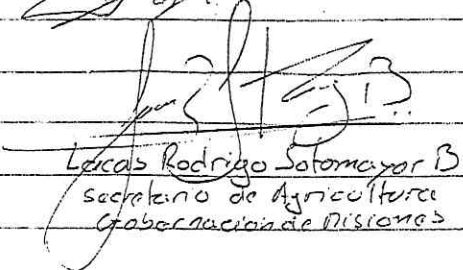 Lucas Rodrigo Sotomayor B
Secretario de Agricultura
Gobernación de Misiones